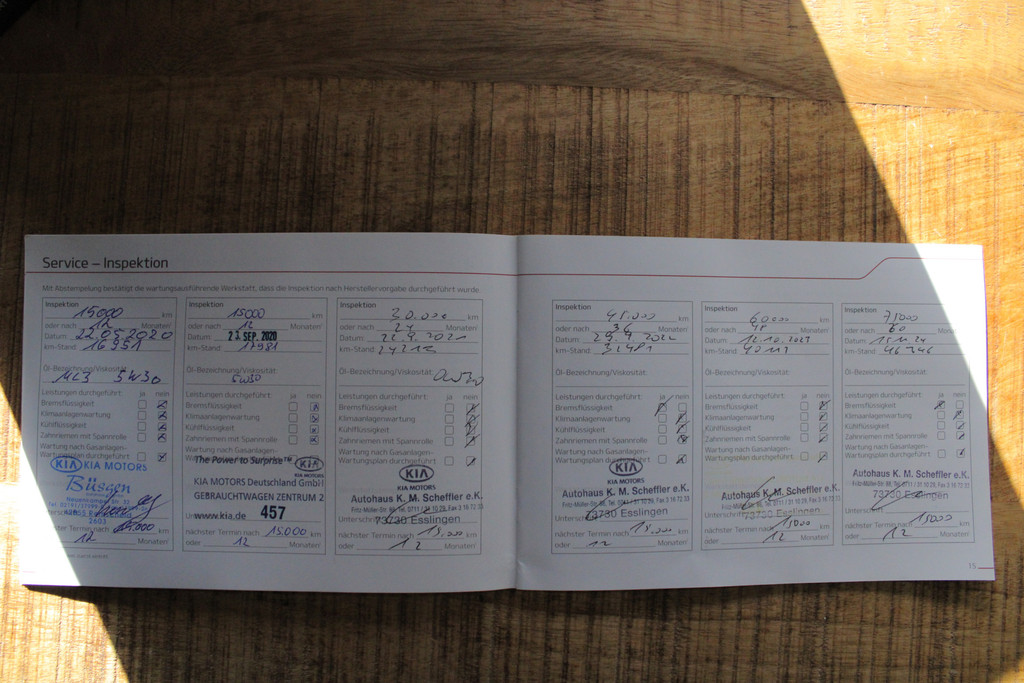 Service – Inspektion
Mit Abstempelung bestätigt die wartungsausführende Werkstatt, dass die Inspektion nach Herstellervorgabe durchgeführt wurde.
Inspektion
15000 km
oder nach 12 Monaten
Datum: 22.05.2020
km-Stand: 16951
Öl-Bezeichnung/Viskosität:
5W30
Leistungen durchgeführt: ja nein
Bremsflüssigkeit
Klimaanlagenwartung
Kühlflüssigkeit
Zahnriemen mit Spannrolle
Wartung nach Gasanlagen-
Wartungsplan durchgeführt
KIA KIA MOTORS
Büsgen
2603
nächster Termin nach 15.000
oder 12 Monaten
Inspektion
15000 km
oder nach 12 Monaten
Datum: 23. SEP. 2020
km-Stand: 17981
Öl-Bezeichnung/Viskosität:
5W30
Leistungen durchgeführt: ja nein
Bremsflüssigkeit
Klimaanlagenwartung
Kühlflüssigkeit
Zahnriemen mit Spannrolle
Wartung nach Gasanlagen-
The Power to Surprise™ KIA
KIA MOTORS Deutschland GmbH
GEBRAUCHTWAGEN ZENTRUM 2
www.kia.de 457
nächster Termin nach 15.000 km
oder 12 Monaten
Inspektion
30.000 km
oder nach 24 Monaten
Datum:
km-Stand:
Öl-Bezeichnung/Viskosität:
0W30
Leistungen durchgeführt: ja nein
Bremsflüssigkeit
Klimaanlagenwartung
Kühlflüssigkeit
Zahnriemen mit Spannrolle
Wartung nach Gasanlagen-
Wartungsplan durchgeführt
KIA
KIA MOTORS
Autohaus K. M. Scheffler e.K.
73730 Esslingen
nächster Termin nach 15.000 km
oder 12 Monaten
Inspektion
45.000 km
oder nach 36 Monaten
Datum:
km-Stand: 32481
Öl-Bezeichnung/Viskosität:
Leistungen durchgeführt: ja nein
Bremsflüssigkeit
Klimaanlagenwartung
Kühlflüssigkeit
Zahnriemen mit Spannrolle
Wartung nach Gasanlagen-
Wartungsplan durchgeführt
KIA
KIA MOTORS
Autohaus K. M. Scheffler e.K.
73730 Esslingen
nächster Termin nach 15.000 km
oder 12 Monaten
Inspektion
60.000 km
oder nach 48 Monaten
Datum: 12.10.2023
km-Stand: 40117
Öl-Bezeichnung/Viskosität:
Leistungen durchgeführt: ja nein
Bremsflüssigkeit
Klimaanlagenwartung
Kühlflüssigkeit
Zahnriemen mit Spannrolle
Wartung nach Gasanlagen-
Wartungsplan durchgeführt
Autohaus K. M. Scheffler e.K.
73730 Esslingen
nächster Termin nach 15000 km
oder 12 Monaten
Inspektion
75000 km
oder nach 60 Monaten
Datum: 15.11.24
km-Stand: 46346
Öl-Bezeichnung/Viskosität:
Leistungen durchgeführt: ja nein
Bremsflüssigkeit
Klimaanlagenwartung
Kühlflüssigkeit
Zahnriemen mit Spannrolle
Wartung nach Gasanlagen-
Wartungsplan durchgeführt
Autohaus K. M. Scheffler e.K.
73730 Esslingen
nächster Termin nach 15000 km
oder 12 Monaten
15